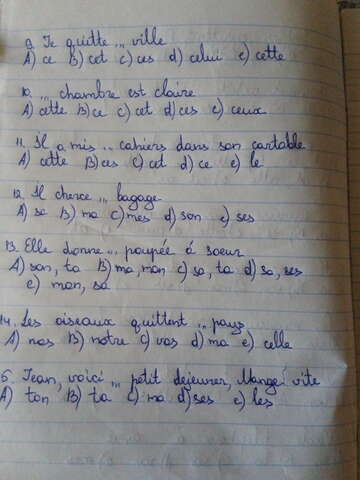 9. Je quitte ... ville
A) ce B) cet c) ces d) celui e) cette
10. ... chambre est claire
A) cette B) ce c) cet d) ces e) ceux
11. Il a mis ... cahiers dans son cartable
A) cette B) ces c) cet d) ce e) le
12. Il cherce ... bagage
A) sa B) ma c) mes d) son e) ses
13. Elle donne ... poupée á soeur
A) son, ta B) ma, mon c) sa, ta d) sa, ses
e) mon, sa
14. Les oiseaux quittent ... pays
A) nos B) notre c) vos d) ma e) celle
5. Jean, voici ... petit dejeuner, Mange vite
A) ton B) ta c) ma d) ses e) les